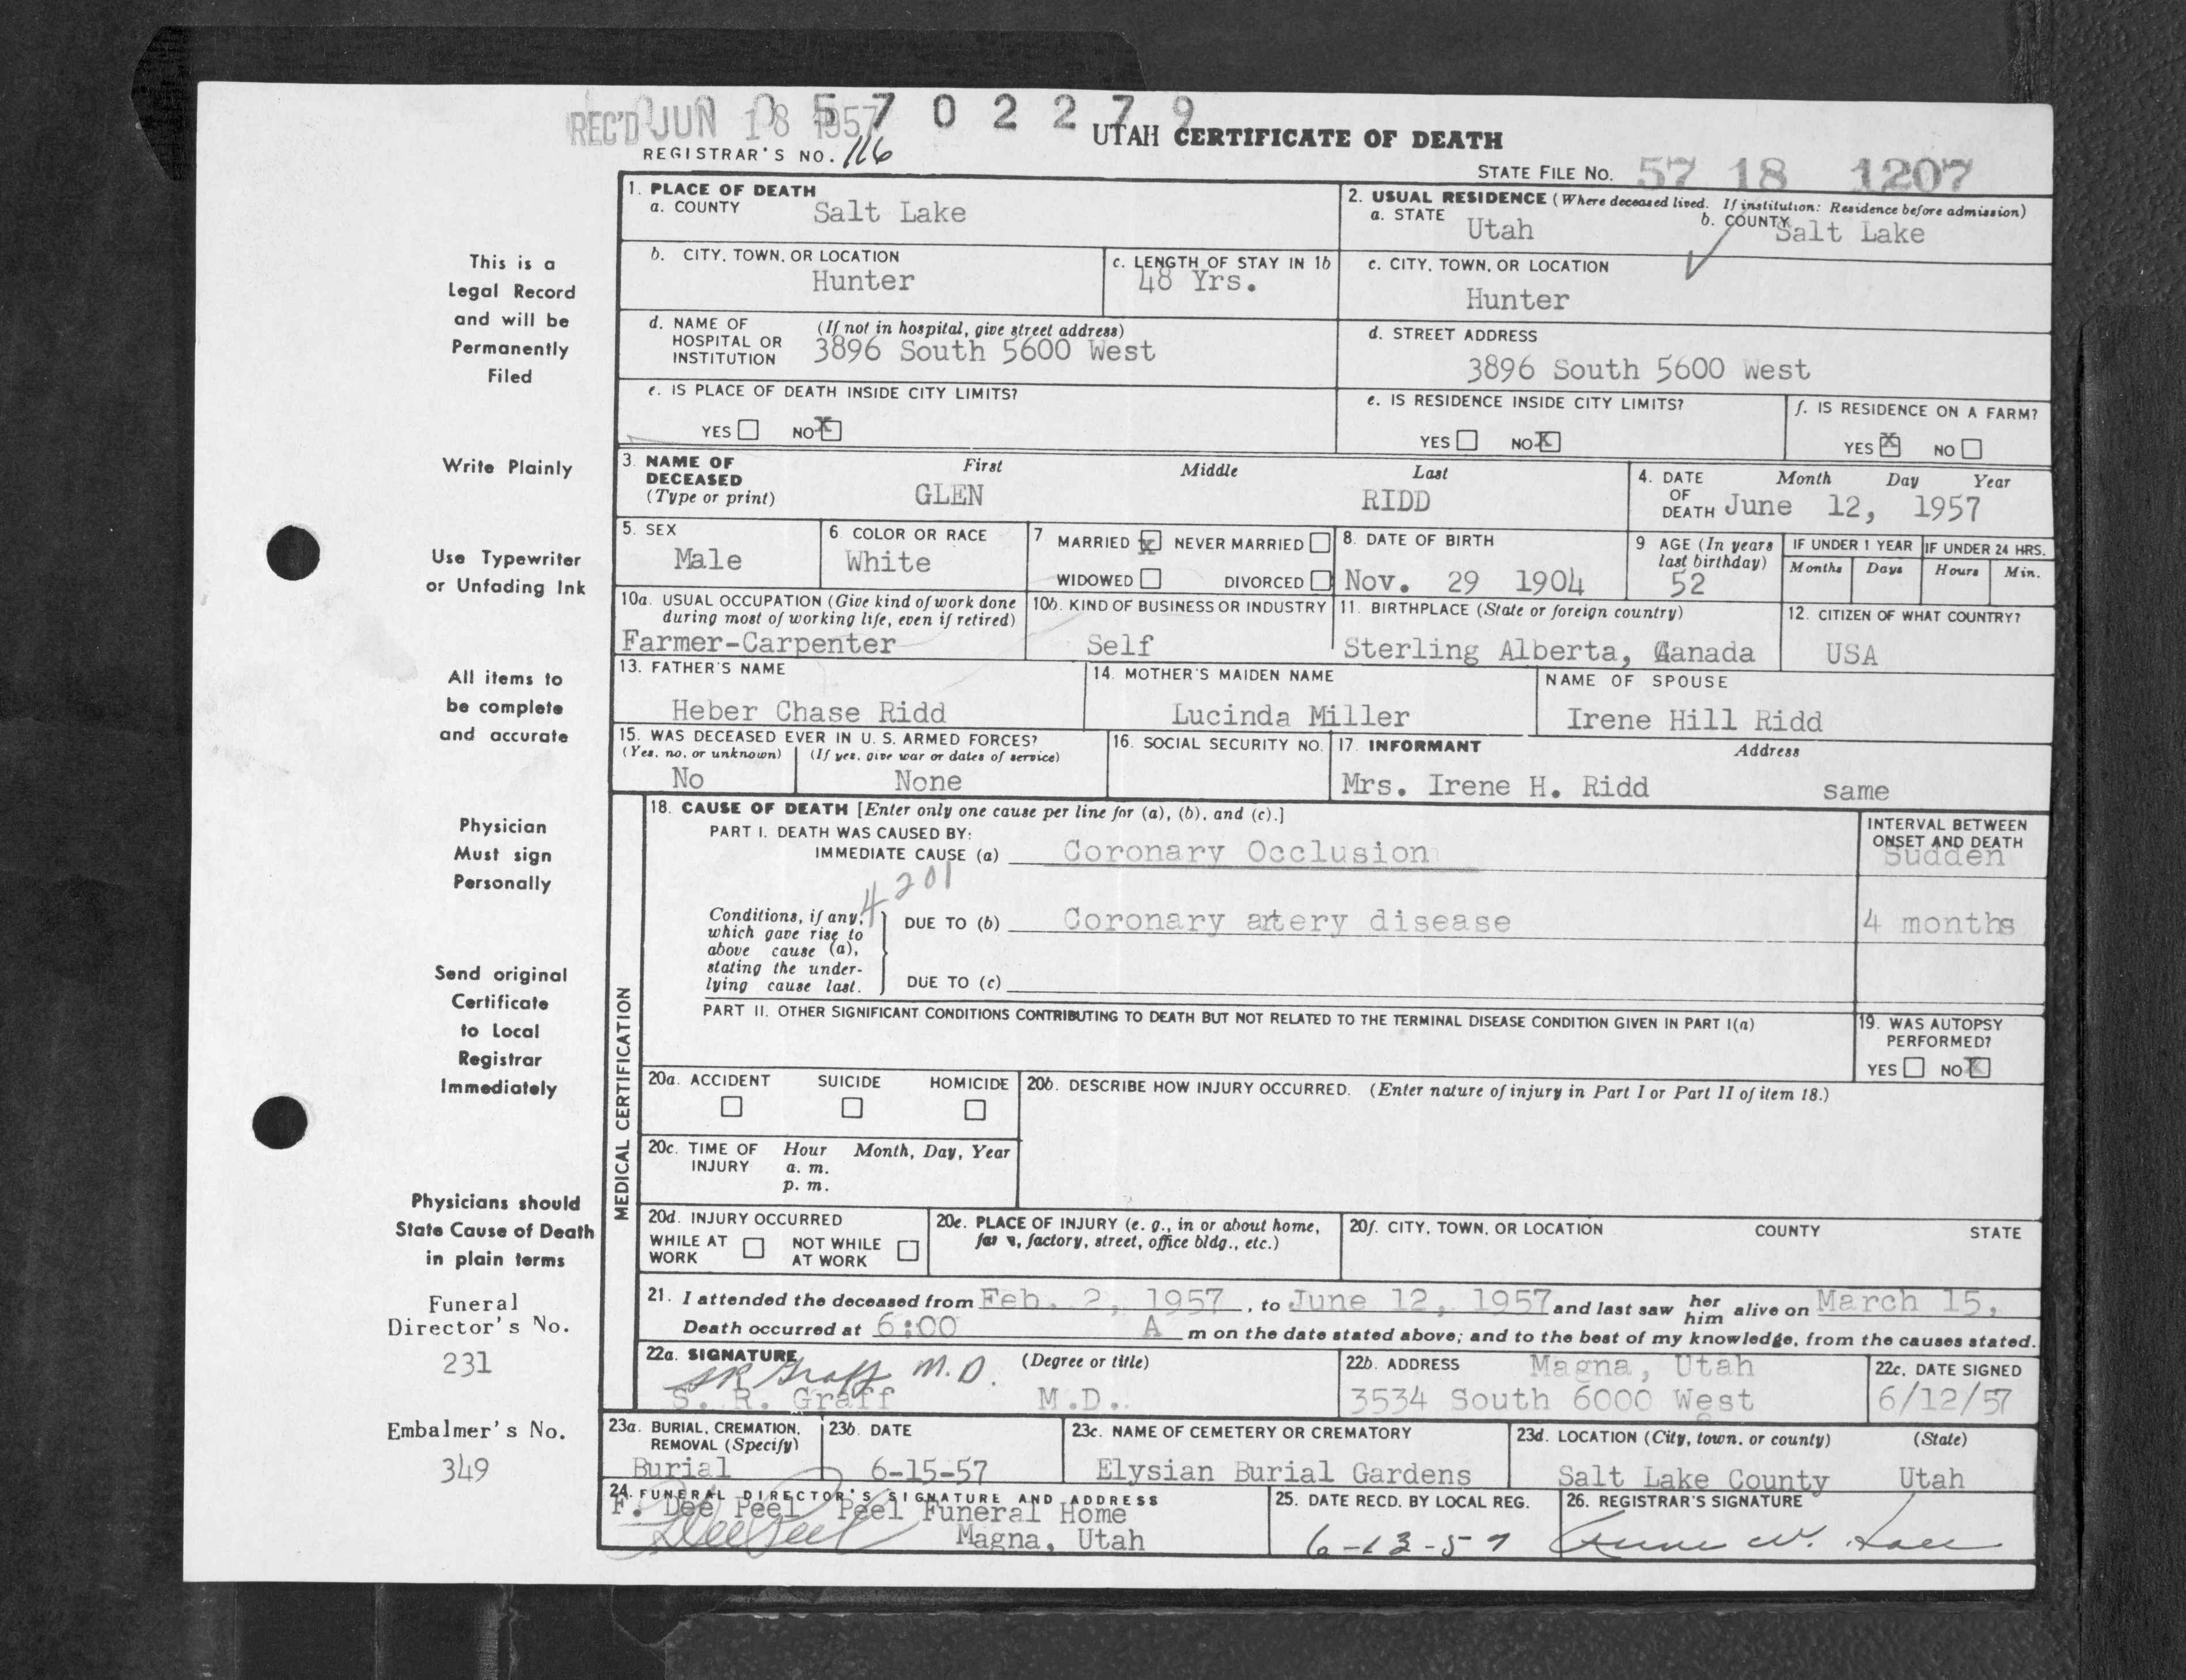 REC'D JUN 18 1957
0 5 7 0 2 2 7 9
UTAH CERTIFICATE OF DEATH
REGISTRAR'S NO. 116
STATE FILE NO. 57 18 1207
This is a
Legal Record
and will be
Permanently
Filed
Write Plainly
Use Typewriter
or Unfading Ink
All items to
be complete
and accurate
Physician
Must sign
Personally
Send original
Certificate
to Local
Registrar
Immediately
Physicians should
State Cause of Death
in plain terms
Funeral
Director's No.
231
Embalmer's No.
349
1. PLACE OF DEATH
a. COUNTY Salt Lake
2. USUAL RESIDENCE (Where deceased lived. If institution: Residence before admission)
a. STATE Utah b. COUNTY Salt Lake
b. CITY, TOWN, OR LOCATION
Hunter
c. LENGTH OF STAY IN 1b
48 Yrs.
c. CITY, TOWN, OR LOCATION
Hunter
d. NAME OF HOSPITAL OR INSTITUTION (If not in hospital, give street address)
3896 South 5600 West
d. STREET ADDRESS
3896 South 5600 West
e. IS PLACE OF DEATH INSIDE CITY LIMITS?
YES NO X
e. IS RESIDENCE INSIDE CITY LIMITS?
YES NO X
f. IS RESIDENCE ON A FARM?
YES X NO
3. NAME OF DECEASED (Type or print) First Middle Last
GLEN RIDD
4. DATE OF DEATH Month Day Year
June 12, 1957
5. SEX
Male
6. COLOR OR RACE
White
7 MARRIED X NEVER MARRIED
WIDOWED DIVORCED
8. DATE OF BIRTH
Nov. 29 1904
9 AGE (In years last birthday)
52
IF UNDER 1 YEAR
Months Days
IF UNDER 24 HRS.
Hours Min.
10a. USUAL OCCUPATION (Give kind of work done during most of working life, even if retired)
Farmer-Carpenter
10b. KIND OF BUSINESS OR INDUSTRY
Self
11. BIRTHPLACE (State or foreign country)
Sterling Alberta, Canada
12. CITIZEN OF WHAT COUNTRY?
USA
13. FATHER'S NAME
Heber Chase Ridd
14. MOTHER'S MAIDEN NAME
Lucinda Miller
NAME OF SPOUSE
Irene Hill Ridd
15. WAS DECEASED EVER IN U. S. ARMED FORCES?
(Yes, no, or unknown) (If yes, give war or dates of service)
No None
16. SOCIAL SECURITY NO.
17. INFORMANT Address
Mrs. Irene H. Ridd same
MEDICAL CERTIFICATION
18. CAUSE OF DEATH [Enter only one cause per line for (a), (b), and (c).]
PART I. DEATH WAS CAUSED BY:
IMMEDIATE CAUSE (a) Coronary Occlusion
INTERVAL BETWEEN ONSET AND DEATH
Sudden
4201
Conditions, if any, which gave rise to above cause (a), stating the underlying cause last.
DUE TO (b) Coronary artery disease
4 months
DUE TO (c)
PART II. OTHER SIGNIFICANT CONDITIONS CONTRIBUTING TO DEATH BUT NOT RELATED TO THE TERMINAL DISEASE CONDITION GIVEN IN PART I(a)
19. WAS AUTOPSY PERFORMED?
YES NO X
20a. ACCIDENT SUICIDE HOMICIDE
20b. DESCRIBE HOW INJURY OCCURRED. (Enter nature of injury in Part I or Part II of item 18.)
20c. TIME OF INJURY Hour Month, Day, Year
a. m.
p. m.
20d. INJURY OCCURRED
WHILE AT WORK NOT WHILE AT WORK
20e. PLACE OF INJURY (e. g., in or about home, farm, factory, street, office bldg., etc.)
20f. CITY, TOWN, OR LOCATION COUNTY STATE
21. I attended the deceased from Feb. 2, 1957, to June 12, 1957 and last saw her him alive on March 15,
Death occurred at 6:00 A m on the date stated above; and to the best of my knowledge, from the causes stated.
22a. SIGNATURE (Degree or title)
SR Graff M.D.
S. R. Graff M.D.
22b. ADDRESS Magna, Utah
3534 South 6000 West
22c. DATE SIGNED
6/12/57
23a. BURIAL, CREMATION, REMOVAL (Specify)
Burial
23b. DATE
6-15-57
23c. NAME OF CEMETERY OR CREMATORY
Elysian Burial Gardens
23d. LOCATION (City, town, or county) (State)
Salt Lake County Utah
24. FUNERAL DIRECTOR'S SIGNATURE AND ADDRESS
F. Dee Peel Peel Funeral Home
F Dee Peel Magna, Utah
25. DATE RECD. BY LOCAL REG.
6-13-57
26. REGISTRAR'S SIGNATURE
W.